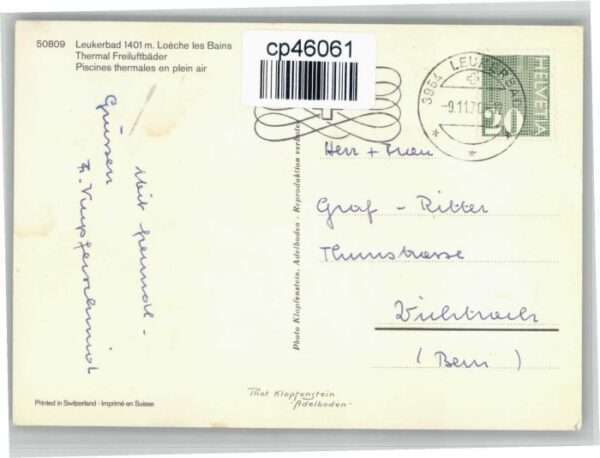 50809 Leukerbad 1401 m. Loèche les Bains
Thermal Freiluftbäder
Piscines thermales en plein air
cp46061
3954 LEUKERBAD
-9.11.70
HELVETIA
20
Mit freundl.-
Grüssen
Photo Klopfenstein, Adelboden - Reproduktion verboten
Herr + Frau
Graf - Ritter
Thunstrasse
Wichtrach
(Bern)
Phot Klopfenstein
Adelboden
Printed in Switzerland - Imprimé en Suisse